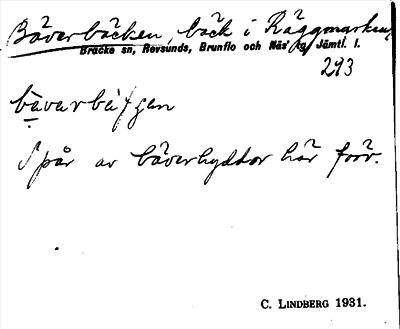 Bäverbäcken, bäck i Räggmarken,
Bräcke sn, Revsunds, Brunflo och Näs tg, Jämtl. l.
293
bävarbäʃʃen
Spår av bäverhyddor här förr.
C. LINDBERG 1931.